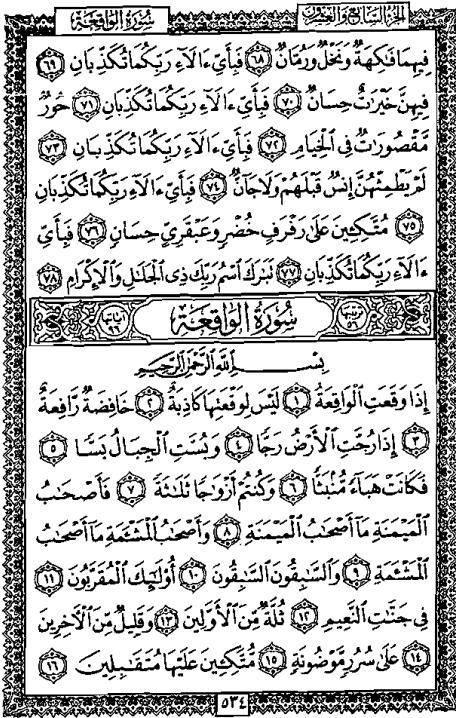 سُورَةُ الوَاقِعَةِ
الجُزءُ السَّابِعُ وَالعِشْرُونَ
فِيهِمَا فَاكِهَةٌ وَنَخْلٌ وَرُمَّانٌ ۝٦٨ فَبِأَيِّ ءَالَآءِ رَبِّكُمَا تُكَذِّبَانِ ۝٦٩
فِيهِنَّ خَيْرَٰتٌ حِسَانٌ ۝٧٠ فَبِأَيِّ ءَالَآءِ رَبِّكُمَا تُكَذِّبَانِ ۝٧١ حُورٌ
مَّقْصُورَٰتٌ فِي الْخِيَامِ ۝٧٢ فَبِأَيِّ ءَالَآءِ رَبِّكُمَا تُكَذِّبَانِ ۝٧٣
لَمْ يَطْمِثْهُنَّ إِنسٌ قَبْلَهُمْ وَلَا جَآنٌّ ۝٧٤ فَبِأَيِّ ءَالَآءِ رَبِّكُمَا تُكَذِّبَانِ
۝٧٥ مُتَّكِـِٔينَ عَلَىٰ رَفْرَفٍ خُضْرٍ وَعَبْقَرِيٍّ حِسَانٍ ۝٧٦ فَبِأَيِّ
ءَالَآءِ رَبِّكُمَا تُكَذِّبَانِ ۝٧٧ تَبَٰرَكَ ٱسْمُ رَبِّكَ ذِي ٱلْجَلَٰلِ وَٱلْإِكْرَامِ ۝٧٨
ترتيبها ٥٦ سُورَةُ الوَاقِعَةِ آياتها ٩٦
بِسْمِ ٱللَّهِ ٱلرَّحْمَٰنِ ٱلرَّحِيمِ
إِذَا وَقَعَتِ ٱلْوَاقِعَةُ ۝١ لَيْسَ لِوَقْعَتِهَا كَاذِبَةٌ ۝٢ خَافِضَةٌ رَّافِعَةٌ
۝٣ إِذَا رُجَّتِ ٱلْأَرْضُ رَجًّا ۝٤ وَبُسَّتِ ٱلْجِبَالُ بَسًّا ۝٥
فَكَانَتْ هَبَآءً مُّنۢبَثًّا ۝٦ وَكُنتُمْ أَزْوَٰجًا ثَلَٰثَةً ۝٧ فَأَصْحَٰبُ
ٱلْمَيْمَنَةِ مَآ أَصْحَٰبُ ٱلْمَيْمَنَةِ ۝٨ وَأَصْحَٰبُ ٱلْمَشْـَٔمَةِ مَآ أَصْحَٰبُ
ٱلْمَشْـَٔمَةِ ۝٩ وَٱلسَّٰبِقُونَ ٱلسَّٰبِقُونَ ۝١٠ أُو۟لَٰٓئِكَ ٱلْمُقَرَّبُونَ ۝١١
فِي جَنَّٰتِ ٱلنَّعِيمِ ۝١٢ ثُلَّةٌ مِّنَ ٱلْأَوَّلِينَ ۝١٣ وَقَلِيلٌ مِّنَ ٱلْءَاخِرِينَ
۝١٤ عَلَىٰ سُرُرٍ مَّوْضُونَةٍ ۝١٥ مُّتَّكِـِٔينَ عَلَيْهَا مُتَقَٰبِلِينَ ۝١٦
٥٣٤